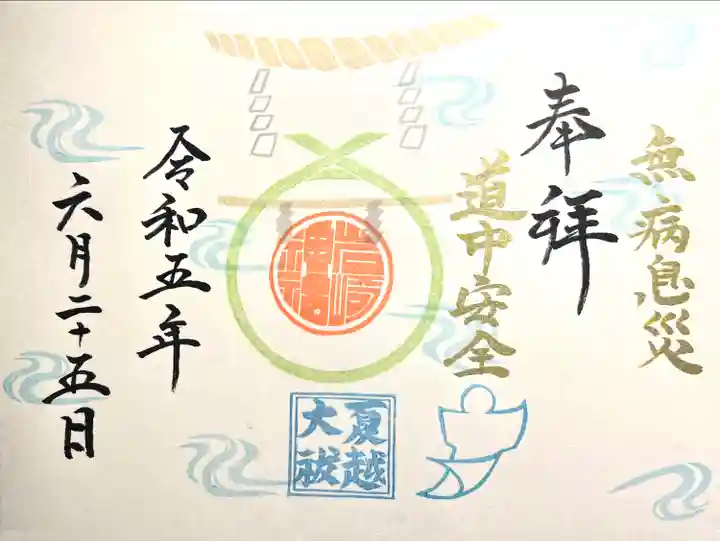 無病息災
奉拝
道中安全
夏越
大祓
令和五年
六月二十五日